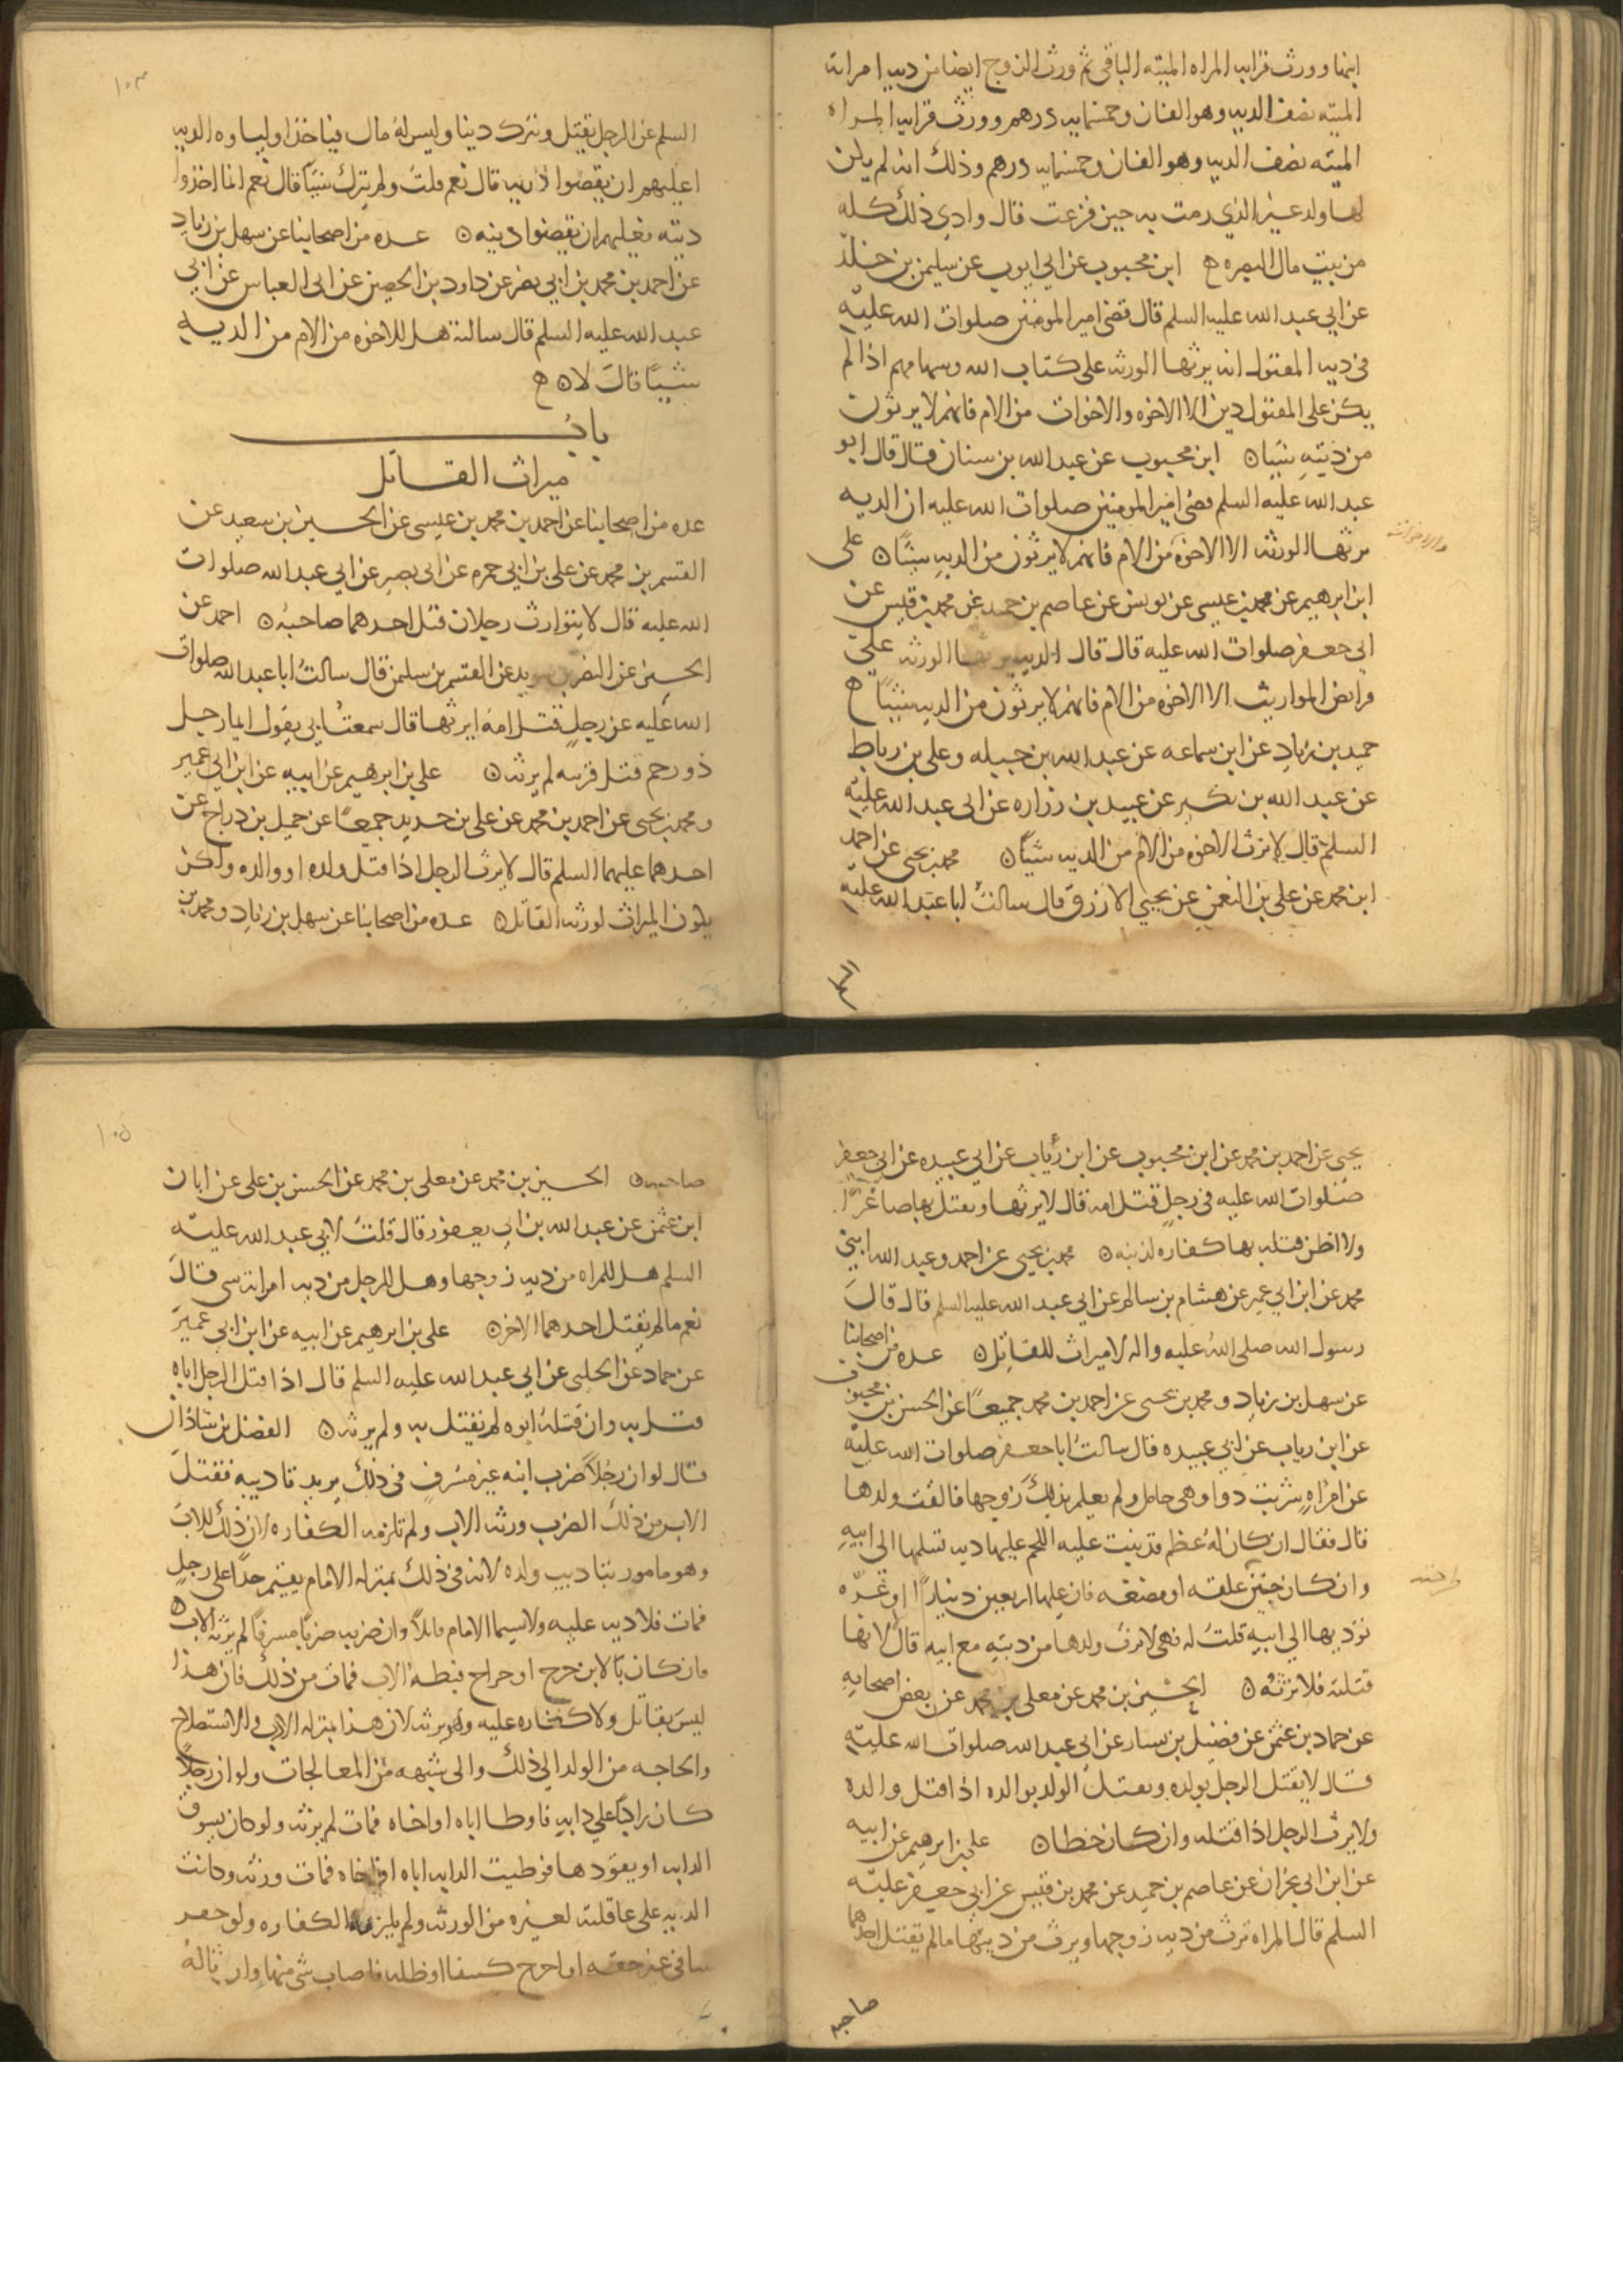 ابنها وورث قرابه المراه الميته الباقي ثم ورث الزوج ايضا من ديه امراته
الميته نصف الديه وهو الفان وخمسمايه درهم وورث قرابه المراه
الميته نصف الديه وهو الفان وخمسمايه درهم وذلك انه لم يكن
لها ولد غير الذي رمت به حين فزعت قال وادي ذلك كله
من بيت مال البصره ابن محبوب عن ابي ايوب عن سليمن بن خلد
عن ابي عبد الله عليه السلم قال قضى امير المومنين صلوات الله عليه
في ديه المقتول انه يرثها الورثه على كتاب الله وسهامهم اذا لم
يكن على المقتول دين الا الاخوه والاخوات من الام فانهم لا يرثون
من ديته شيئا ابن محبوب عن عبد الله بن سنان قال قال ابو
عبد الله عليه السلم قضى امير المومنين صلوات الله عليه ان الديه
يرثها الورثه الا الاخوه من الام فانهم لا يرثون من الديه شيئا على
والاخوات
ابن ابرهيم عن محمد بن عيسى عن يونس عن عاصم بن حميد عن محمد بن قيس عن
ابي جعفر صلوات الله عليه قال قال الديه يرثها الورثه على
فرايض المواريث الا الاخوه من الام فانهم لا يرثون من الديه شيئا
حميد بن زياد عن ابن سماعه عن عبد الله بن جبيله وعلي بن رباط
عن عبد الله بن بكير عن عبيد بن زراره عن ابي عبد الله عليه
السلم قال لا يرث الاخوه من الام من الديه شيئا محمد بن يحيى عن احمد
ابن محمد عن علي بن النعمن عن يحيى الازرق قال سالت ابا عبد الله عليه
السلم عن الرجل يقتل ويترك دينا وليس له مال فياخذ اولياوه الديه
اعليهم ان يقضوا دينه قال نعم قلت ولم يترك شيئا قال نعم انما اخذوا
ديته فعليهم ان يقضوا دينه عده من اصحابنا عن سهل بن زياد
عن احمد بن محمد بن ابي نصر عن داود بن الحصين عن ابي العباس عن ابي
عبد الله عليه السلم قال سالته هل للاخوه من الام من الديه
شيئا قال لا
باب
ميراث القاتل
عده من اصحابنا عن احمد بن محمد بن عيسى عن الحسين بن سعيد عن
القسم بن محمد عن علي بن ابي حمزه عن ابي بصير عن ابي عبد الله صلوات
الله عليه قال لا يتوارث رجلان قتل احدهما صاحبه احمد عن
الحسين عن النضر بن سويد عن القسم بن سليمن قال سالت ابا عبد الله صلوات
الله عليه عن رجل قتل امه ايرثها قال سمعت ابي يقول ايما رجل
ذو رحم قتل قريبه لم يرثه علي بن ابرهيم عن ابيه عن ابن ابي عمير
ومحمد بن يحيى عن احمد بن محمد عن علي بن حديد جميعا عن جميل بن دراج عن
احدهما عليهما السلم قال لا يرث الرجل اذا قتل ولده او والده ولكن
يكون الميراث لورثه القاتل عده من اصحابنا عن سهل بن زياد ومحمد بن
يحيى عن احمد بن محمد عن ابن محبوب عن ابن رئاب عن ابي عبيده عن ابي جعفر
صلوات الله عليه في رجل قتل امه قال لا يرثها ويقتل بها صاغرا
ولا اظن قتله بها كفاره لذنبه محمد بن يحيى عن احمد وعبد الله ابني
محمد عن ابن ابي عمير عن هشام بن سالم عن ابي عبد الله عليه السلم قال قال
رسول الله صلى الله عليه واله لا ميراث للقاتل عده من اصحابنا
عن سهل بن زياد ومحمد بن يحيى عن احمد بن محمد جميعا عن الحسن بن محبوب
عن ابن رياب عن ابي عبيده قال سالت ابا جعفر صلوات الله عليه
عن امراه شربت دوا وهي حامل ولم يعلم بذلك زوجها فالقت ولدها
قال فقال ان كان له عظم قد نبت عليه اللحم عليها ديه تسلمها الى ابيه
وان كان جنين علقه او مضغه فان عليها اربعين دينارا او غره
توديها الى ابيه قلت له فهي لا ترث ولدها من ديته مع ابيه قال لا لانها
قتلته فلا ترثه الحسين بن محمد عن معلى بن محمد عن بعض اصحابه
عن حماد بن عثمن عن فضيل بن يسار عن ابي عبد الله صلوات الله عليه
قال لا يقتل الرجل بولده ويقتل الولد بوالده اذا قتل والده
ولا يرث الرجل اذا قتله وان كان خطا علي بن ابرهيم عن ابيه
عن ابن ابي نجران عن عاصم بن حميد عن محمد بن قيس عن ابي جعفر عليه
السلم قال المراه ترث من ديه زوجها ويرث من ديتها ما لم يقتل احدهما
صاحبه
صاحبه الحسين بن محمد عن معلى بن محمد عن الحسن بن علي عن ابان
ابن عثمن عن عبد الله بن ابي يعفور قال قلت لابي عبد الله عليه
السلم هل للمراه من ديه زوجها وهل للرجل من ديه امراته شي قال
نعم ما لم يقتل احدهما الاخر علي بن ابرهيم عن ابيه عن ابن ابي عمير
عن حماد عن الحلبي عن ابي عبد الله عليه السلم قال اذا قتل الرجل اباه
قتل به وان قتله ابوه لم يقتل به ولم يرثه الفضل بن شاذان
قال لو ان رجلا ضرب ابنه غير مسرف في ذلك يريد تاديبه فقتل
الابن من ذلك الضرب ورثه الاب ولم تلزمه الكفاره لان ذلك للاب
وهو مامور بتاديب ولده لانه في ذلك بمنزله الامام يقيم حدا على رجل
فمات فلا ديه عليه ولا يسما الامام قاتلا وان ضربه ضربا مسرفا لم يرثه الاب
فان كان بالابن جرح او خراج فبطه الاب فمات من ذلك فان هذا
ليس بقاتل ولا كفاره عليه وهو يرثه لان هذا بمنزله الادب والاستصلاح
والحاجه من الولد الى ذلك والى شبهه من المعالجات ولو ان رجلا
كان راكبا على دابه فاوطا اباه او اخاه فمات لم يرثه ولو كان يسوق
الدابه او يقودها فوطيت الدابه اباه او اخاه فمات ورثه وكانت
الديه على عاقلته لغيره من الورثه ولم يلزمه الكفاره ولو حفر
في غير حقه او اخرج كنيفا او ظله فاصاب شي منها وارثا له